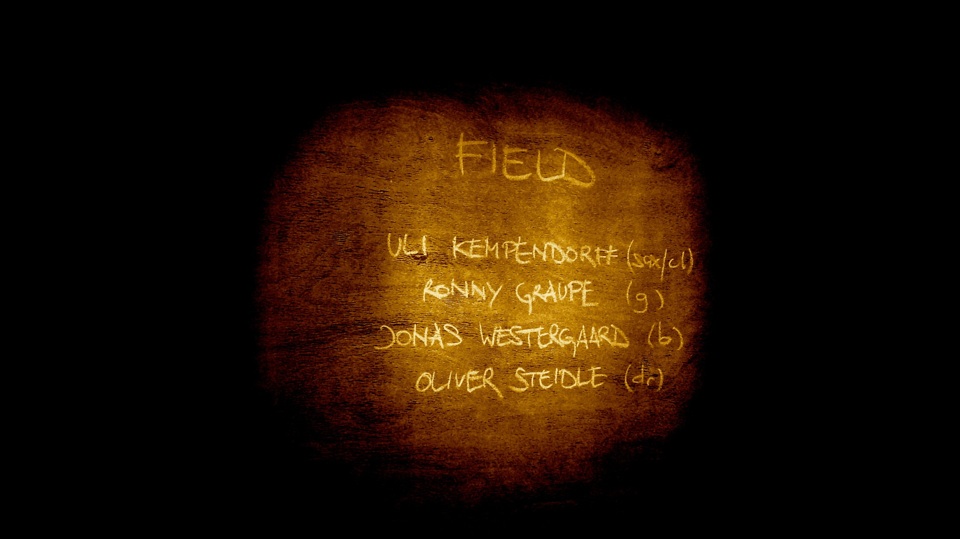 FIELD
ULI KEMPENDORFF (sax/cl)
RONNY GRAUPE (g)
JONAS WESTERGAARD (b)
OLIVER STEIDLE (dr)